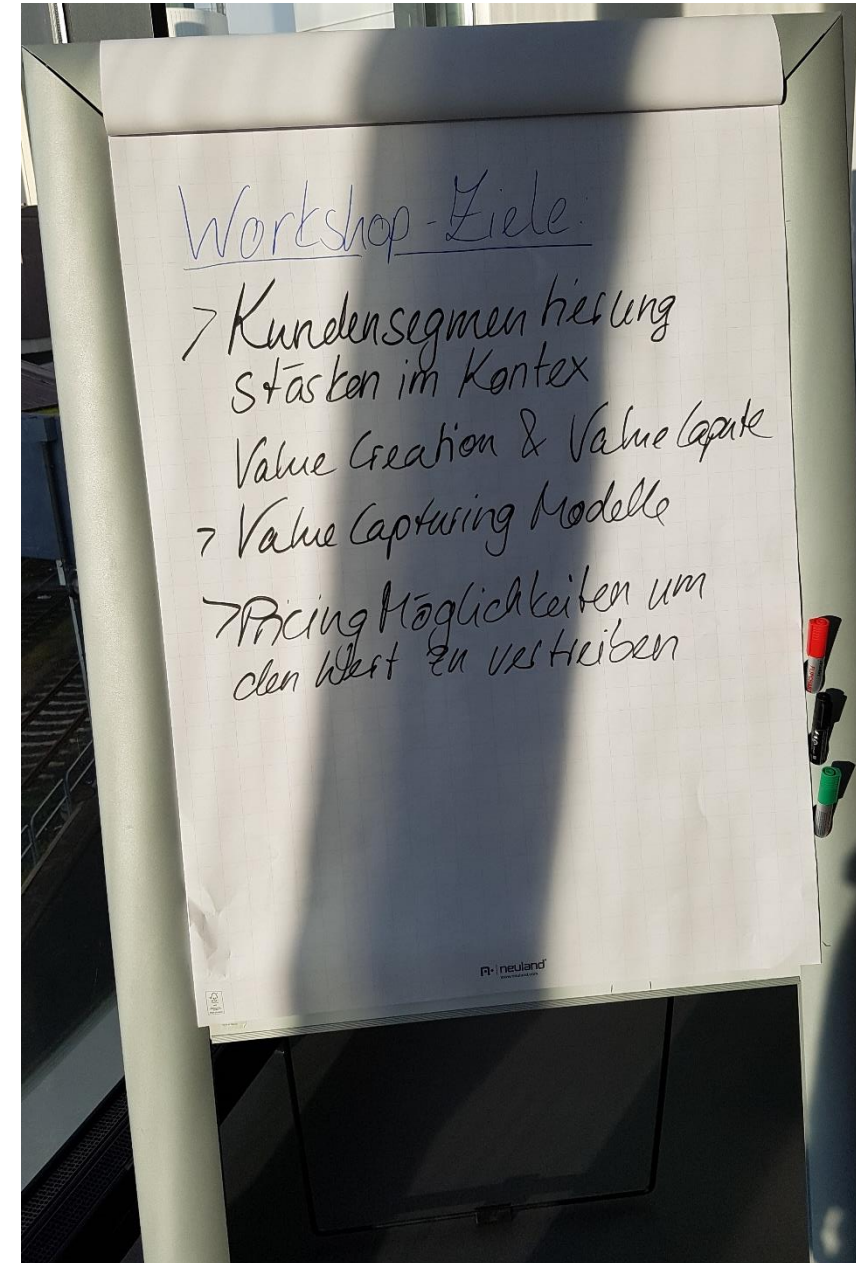 Workshop-Ziele:
> Kundensegmentierung
stärken im Kontex
Value Creation & Value Capute
> Value Capturing Modelle
> Pricing Möglichkeiten um
den Wert zu vertreiben
neuland